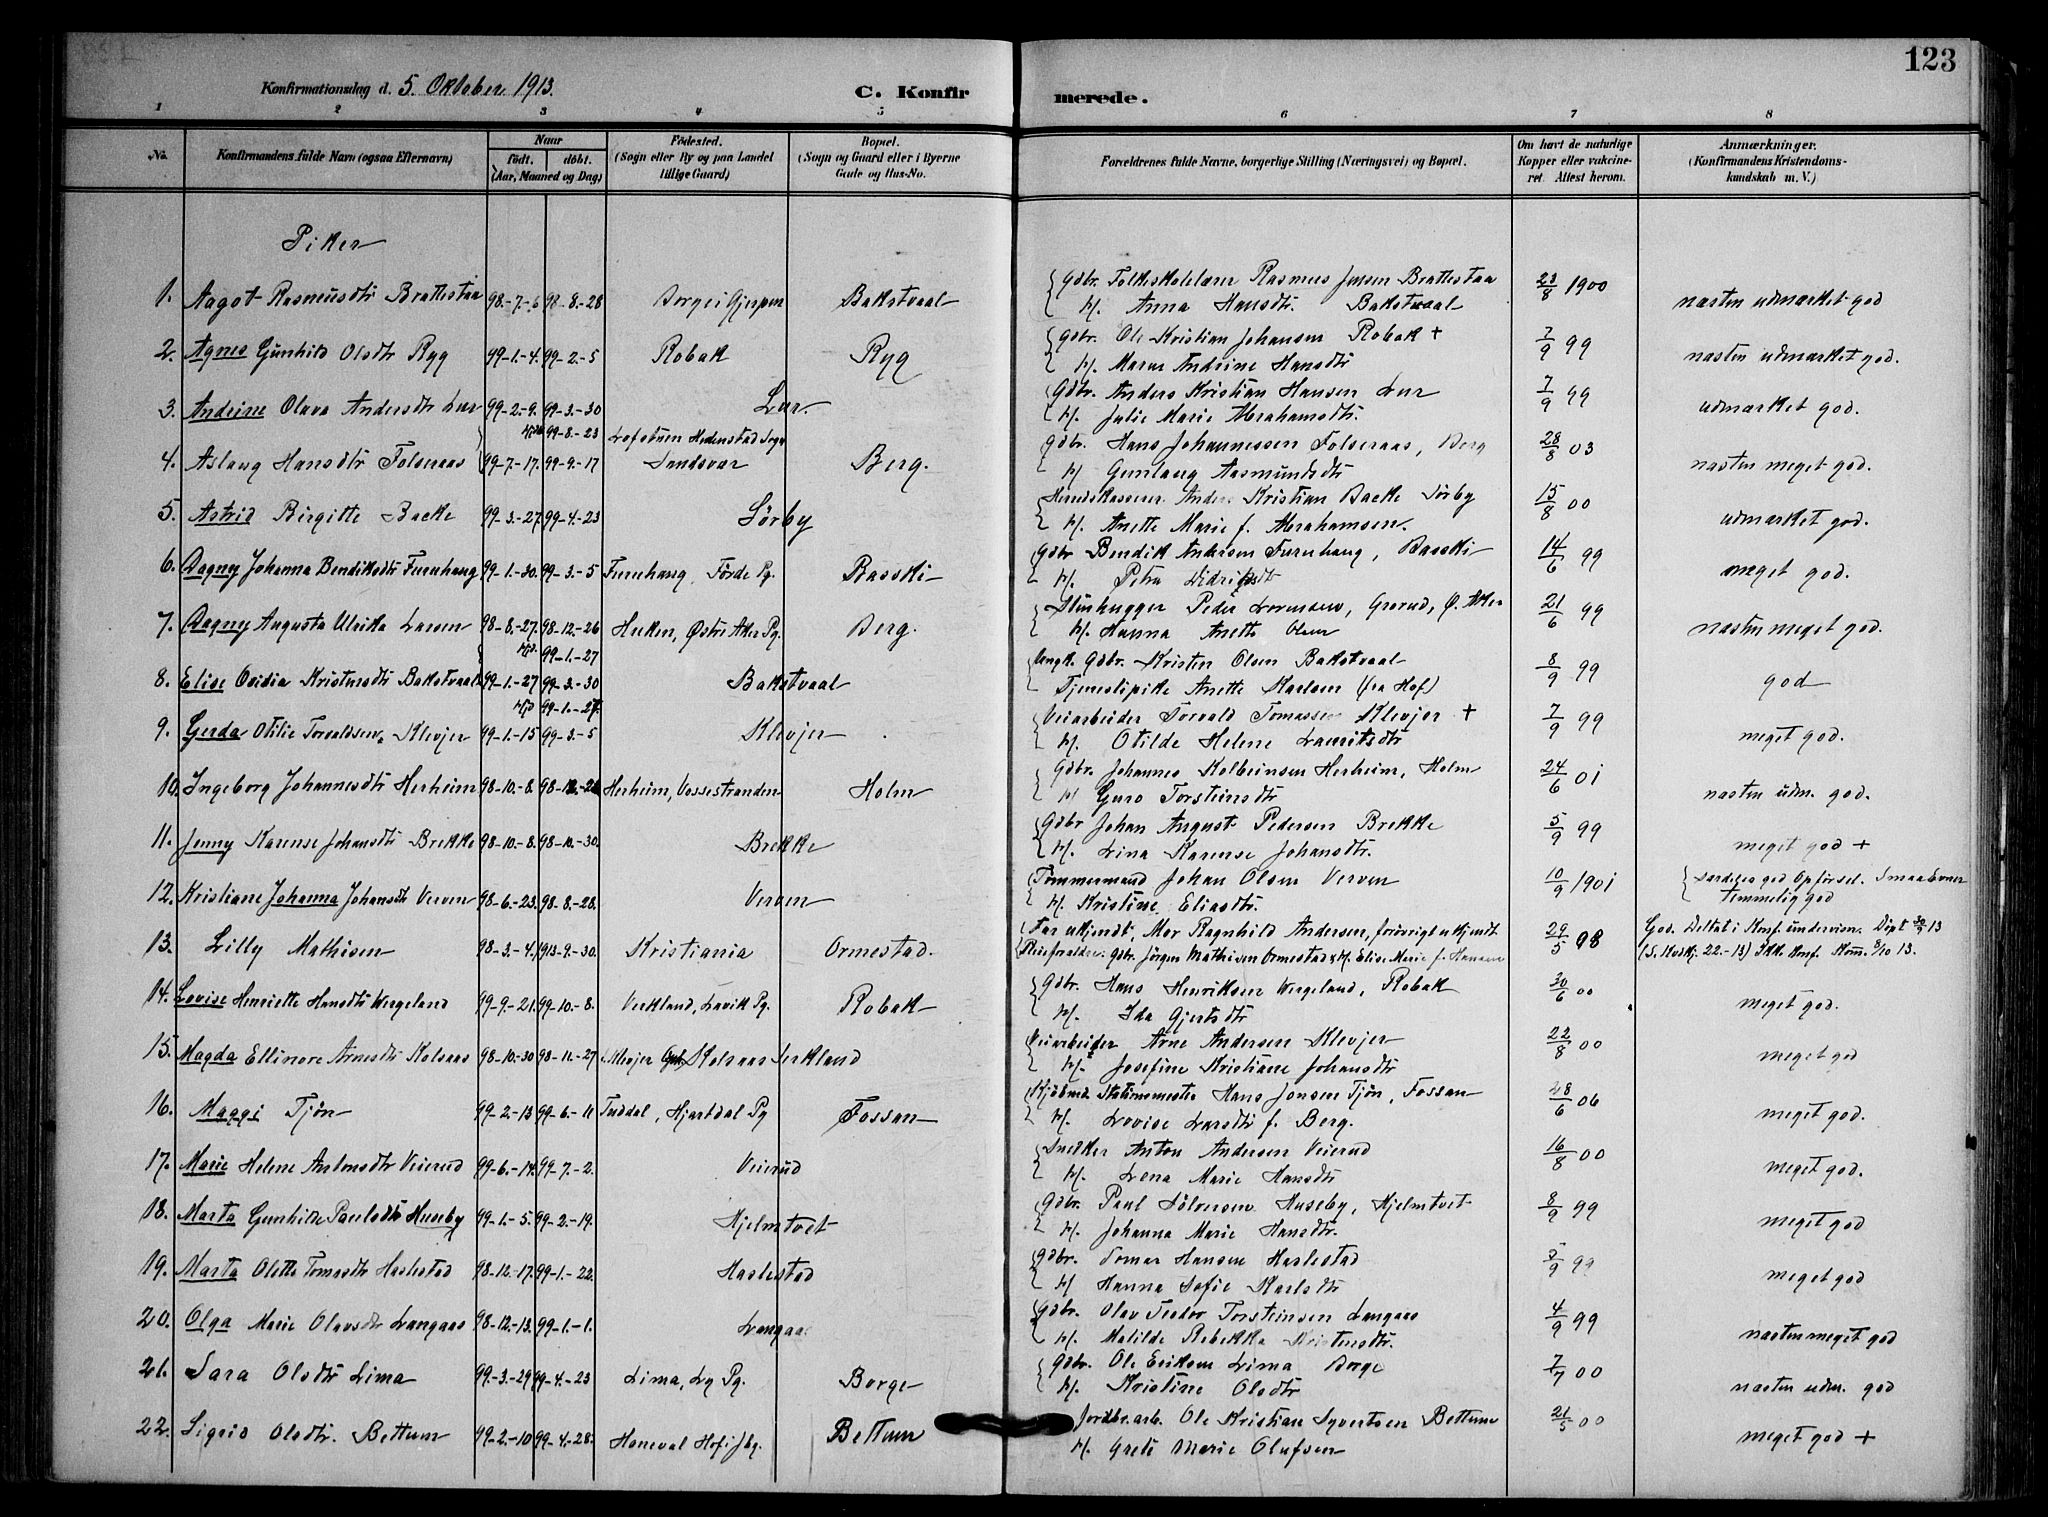 123
Konfirmationsdag d. 5. Oktober 1913.
C. Konfirmerede.
1 2 3 4 5 6 7 8
No.
Konfirmandens fulde Navn (ogsaa Efternavn)
Naar
født. døbt.
(Aar, Maaned og Dag)
Fødested.
(Sogn eller By og paa Landet
tillige Gaard)
Bopæl.
(Sogn og Gaard eller i Byerne
Gade og Hus-No.
Forældrenes fulde Navne, borgerlige Stilling (Næringsvei) og Bopæl.
Om havt de naturlige
Kopper eller vakcine-
ret. Attest herom.
Anmærkninger.
(Konfirmandens Kristendoms-
kundskab m. V.)
Piker
1. Aagot Rasmusdtr Brattestaa 98-7-6 98-8-28 Borge i Gjerpen Bakstvaal Gdbr. Folkeskolelærer Rasmus Jensen Brattestaa 23/8 1900 næsten udmærket god
H. Anna Hansdtr. Bakstvaal
2. Agnes Gunhild Olsdtr Ryg 99-1-4. 99-2-5 Robak Ryg Gdbr. Ole Kristian Johansen Robak + 7/9 99 næsten udmærket god.
H. Maren Andrine Hansdtr
3. Andrine Olava Andersdtr Lur 99-2-9. 99-3-30 Lur. Gdbr. Anders Kristian Hansen Lur 7/9 99 udmærket god.
H. Julie Marie Abrahamsdtr.
99-8-23
4. Aslaug Hansdtr Folseraas 99-7-17. 99-9-17 Hedenstad Sogn Sandsvær Berg. Gdbr. Hans Johannessen Folseraas, Berg 28/8 03 næsten meget god.
H Gunlaug Aasmundsdtr
5. Astrid Birgitte Backe 99-3-27. 99-4-23 Sørby Herredskasserer Anders Kristian Backe Sørby 15/8 00 udmærket god.
H. Anette Marie f. Abrahamsen.
6. Dagny Johanna Bendiksdtr Furuhaug 99-1-30. 99-3-5 Furuhaug, Førde Pg. Basski Gdbr Bendik Andersen Furuhaug, Basski 14/6 99 meget god.
H. Petra Didriksdtr
7. Dagny Augusta Ulrika Larsen 98-8-27. 98-12-26 Huken, Østre Aker Pg. Berg. Stenhugger Peder Lorensen, Grorud, Ø. Aker 21/6 99 næsten meget god.
H. Hanna Anette Olsen
99-1-27
8. Elise Ovidia Kristensdtr Bakstvaal 99-1-27 99-3-30 Bakstvaal Ungk. Gdbr. Kristen Olsen Bakstvaal 8/9 99 god
Tjenestepike Anette Karlsen (fra Hof)
99-1-27.
9. Gerda Otilie Torvaldsen, Klevjer 99-1-15 99-3-5 Klevjer Veiarbeider Torvald Tomassen Klevjer + 7/9 99 meget god.
H. Otilde Helene Lauritsdtr
10. Ingeborg Johannesdtr Herheim 98-10-8. Herheim, Vossestranden Holm Gdbr. Johannes Kolbeinsen Herheim, Holm 24/6 01 næsten udm. god.
H Guro Torsteinsdtr
11. Jenny Karense Johansdtr Brekke 98-10-8. 98-10-30. Brekke Gdbr Johan August Pedersen Brekke 5/9 99 meget god +
H. Lina Karense Johansdtr.
12. Kristiane Johanna Johansdtr Verven 98-6-23. 98-8-28. Verven Tømmermand Johan Olsen Verven 10/9 1901 Særdeles god Opførsel. Smaa Evner
H. Kristine Eliasdtr. temmelig god
13. Lilly Mathisen 98-3-4. 1913-9-30. Kristiania Ormestad. Far ukjendt, Mor Ragnhild Andersen, forøvrigt ukjendt 29/5 98 God. Deltat i Konf. undervisn. Døpt 30/9 13
Pleieforældre: Gdbr. Jørgen Mathisen Ormestad & H. Elise Marie f. Hansen (S. Hvdkj. 22-13) Ikke Konf. Komm. 5/10 13.
14. Lovise Henriette Hansdtr Wergeland 99-9-21. 99-10-8. Verkland, Lavik Pg. Robak Gdbr. Hans Henriksen Wergeland, Robak 30/6 00 meget god.
H. Ida Gjertsdtr
15. Magda Ellinore Arnesdtr Kolsaas 98-10-30 98-11-27 Klevjer Kolsaas Serkland Veiarbeider Arne Andersen Klevjer 22/8 00 meget god
H. Josefine Kristiane Johansdtr
16. Maggi Tjøn 99-2-13 99-6-11 Tuddal, Hjartdal Pg Fossan Kjøbmd. Stationsmester Hans Jonsen Tjøn, Fossan 28/6 06 meget god.
H. Lovise Larsdtr f. Berg.
17. Marie Helene Antonsdtr Veierud 99-6-14. 99-7-2. Veierud Snekker Anton Andersen Veierud 16/8 00 meget god.
H. Lena Marie Hansdtr
18. Marta Gunhilde Paulsdtr Huseby 99-1-5. 99-2-19. Hjelmtvet Gdbr. Paul Sølversen Huseby, Hjelmtvet 8/9 99 meget god
H. Johanna Marie Hansdtr.
19. Marta Olette Tomasdtr Haslestad 98-12-17. 99-1-22. Haslestad Gdbr. Tomas Hansen Haslestad 5/9 99 meget god
H Hanna Sofie Karlsdtr
20. Olga Marie Olavsdtr Langaas 98-12-13. 99-1-1. Langaas Gdbr. Olav Teodor Torsteinsen Langaas 4/9 99 næsten meget god
H. Matilde Rebekka Kristensdtr.
21. Sara Olsdtr Lima 99-3-29 99-4-23 Lima, Ly Pg. Borge Gdbr. Ole Eriksen Lima Borge 7/7 00 næsten udm. god
H. Kristine Olsdtr
22. Sigrid Olsdtr. Bettum 99-2-10 99-4-28. Haneval Hof i Jbg. Bettum Jordbr.arb. Ole Kristian Syvertsen Bettum 21/5 00 meget god +
H. Grete Marie Olufsen